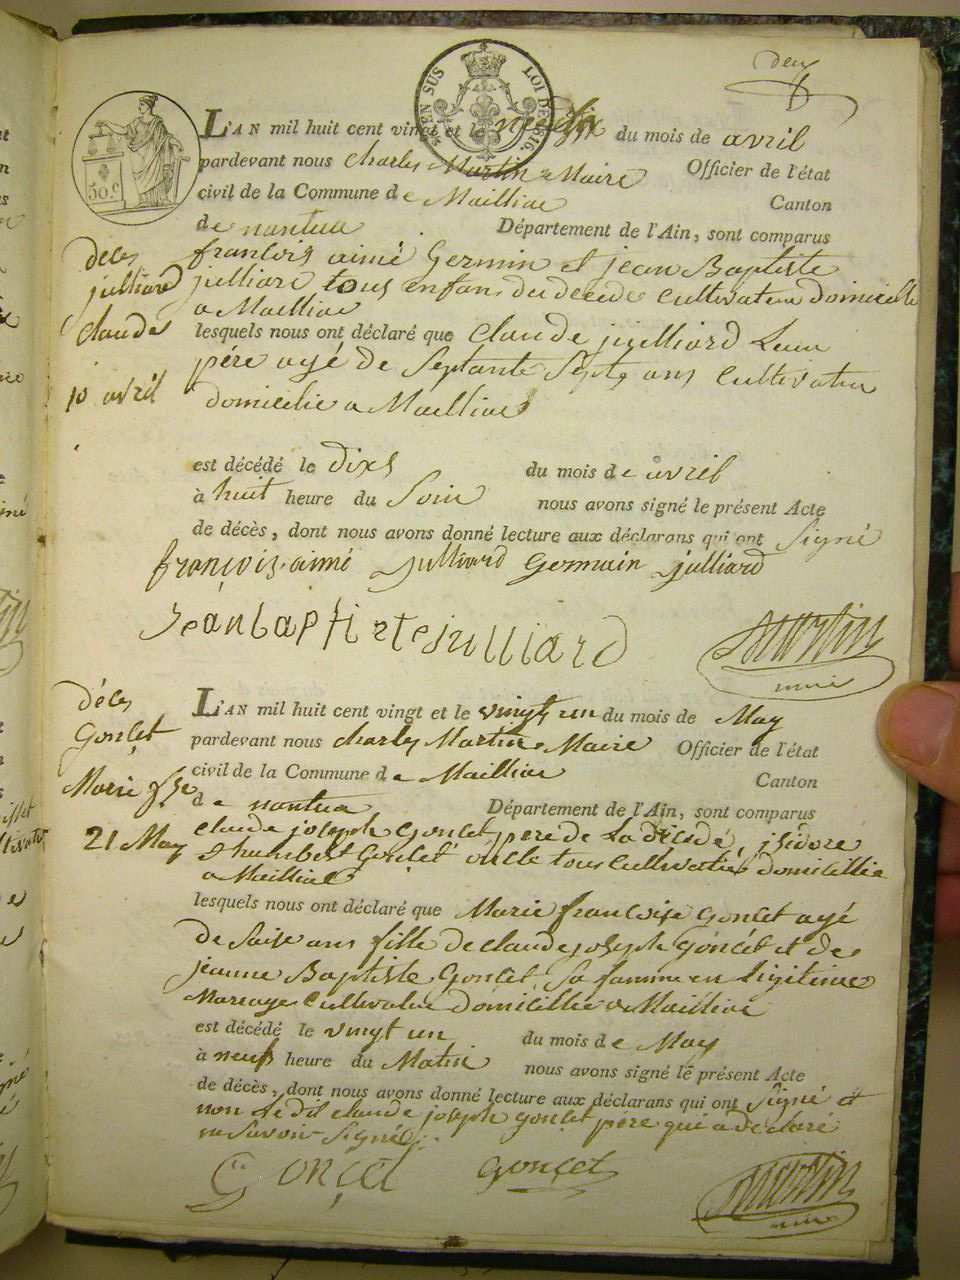 deux
EN SUS
LOI DE 1816.
50.c
L'AN mil huit cent vingt et le dix du mois de avril
pardevant nous Charles Martin Maire Officier de l'état
civil de la Commune de Mailliac Canton
de nantua Département de l'Ain, sont comparus
décès
julliard
Claude
10 avril
francois aimé Germin et jean Baptiste
julliard tous enfans du décédé Cultivateur domicilié
a Mailliac
lesquels nous ont déclaré que Claude juilliard Leur
pére agé de Septante Septs ans Cultivateur
domicilié a Mailliac
est décédé le dixs du mois de avril
à huit heure du Soir nous avons signé le présent Acte
de décès, dont nous avons donné lecture aux déclarans qui ont Signé
françois aimé Julliard Germain julliard
jean baptiste julliard
Martin
maire
décès
Gonçet
Marie fse
21 May
L'AN mil huit cent vingt et le vingt un du mois de May
pardevant nous Charles Martin Maire Officier de l'état
civil de la Commune de Mailliac Canton
de nantua Département de l'Ain, sont comparus
Claude joseph Goncet pere de La décédé, isidore
humbert Goncet oncle tous Cultivatier domicillié
a Mailliac
lesquels nous ont déclaré que Marie francoise Goncet agé
de Saise ans fille de Claude joseph Goncet et de
jeanne Baptiste Goncet, Sa famme en Ligitime
Mareage Cultivateur domicillié a Mailliac
est décédé le vingt un du mois de May
à neufs heure du Matin nous avons signé le présent Acte
de décès, dont nous avons donné lecture aux déclarans qui ont Signé et
non Le dit Claude joseph Goncet pere qui a déclaré
ne Savoir Signé
Gonçet Gonçet
Martin
maire